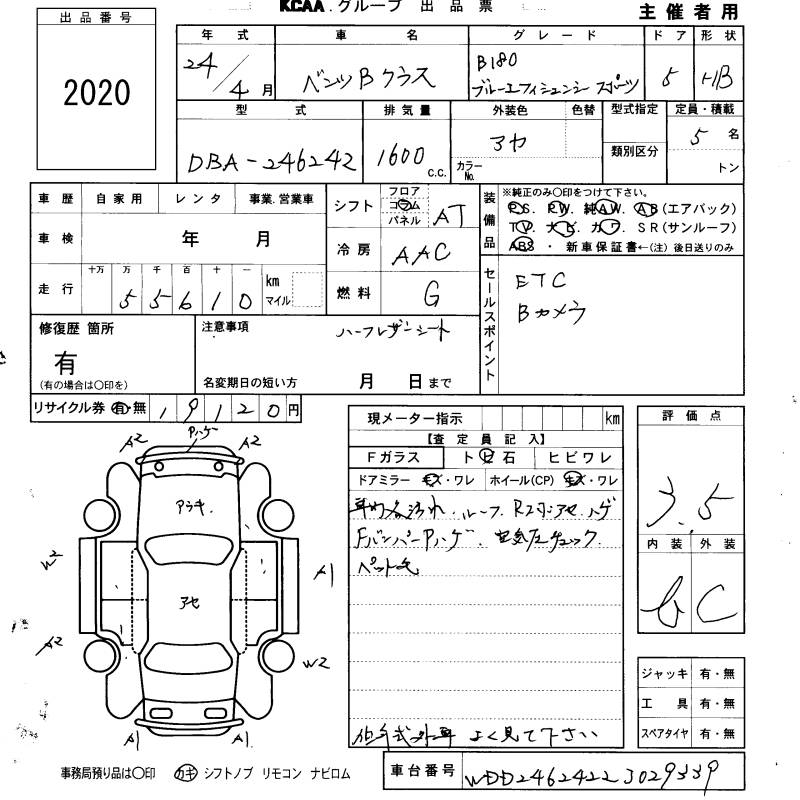 KCAA.グループ 出品票
主催者用
出品番号
2020
年式 車名 グレード ドア 形状
24/4月 ベンツBクラス B180 5 HB
ブルーエフィシェンシー スポーツ
型式 排気量 外装色 色替 型式指定 定員・積載
DBA-246242 1600 c.c. アセ カラーNo. 類別区分 5名
トン
車歴 自家用 レンタ 事業.営業車
シフト フロア コラム パネル AT
車検 年 月
冷房 AAC
走行 十万 万 千 百 十 一
55610 km マイル
燃料 G
装備品 ※純正のみ〇印をつけて下さい。
P.S. P.W. 純A.W. A.B(エアバック)
TV. ナビ. カワ. SR(サンルーフ)
ABS ・ 新車保証書←(注) 後日送りのみ
セールスポイント
ETC
Bカメラ
修復歴 箇所
有
(有の場合は〇印を)
注意事項
ハーフレザーシート
名変期日の短い方 月 日まで
リサイクル券 有・無 19120円
現メーター指示 km
【査定員記入】
Fガラス トビ石 ヒビワレ
ドアミラー キズ・ワレ ホイール(CP) キズ・ワレ
ルーフ、Rスポ、アセ、ハゲ
FバンパーPハゲ、空気圧チェック
よく見て下さい
評価点
3.5
内装 外装
b C
ジャッキ 有・無
工具 有・無
スペアタイヤ 有・無
A2 Pハゲ A2
アラキ.
W2
アセ
A1
A2
W2
A1 A1
事務局預り品は〇印 カギ シフトノブ リモコン ナビロム
車台番号 WDD2462422J029339